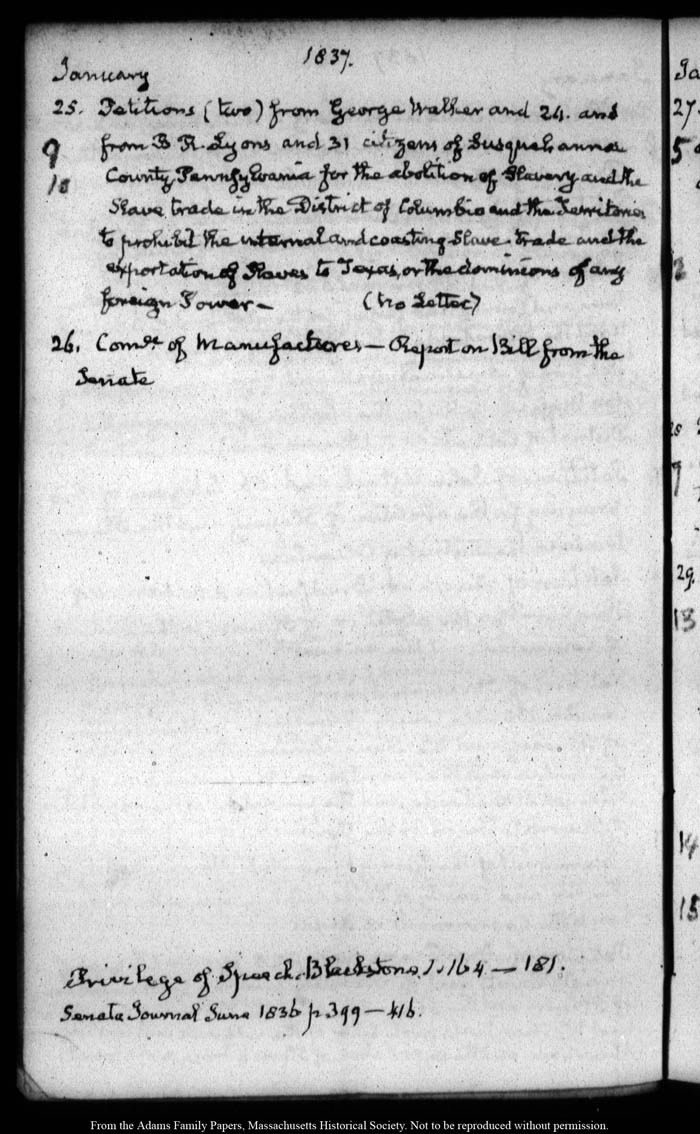 1837.
January
25. Petitions (two) from George Walker and 24. and
9 from B R. Lyons and 31 citizens of Susquehanna
10 County, Pennsylvania for the abolition of Slavery and the
Slave trade in the District of Columbia and the Territories
to prohibit the internal and coasting Slave-trade and the
exportation of Slaves to Texas, or the dominions of any
foreign Power— (No Letter)
26. Comee. of Manufactures— Report on Bill from the
Senate
Privilege of Speech. Blackstone. 1. 164—181.
Senate Journal June 1836 p 399—416.
Ja
27.
5
3
28
9
29.
13
14
15
From the Adams Family Papers, Massachusetts Historical Society. Not to be reproduced without permission.